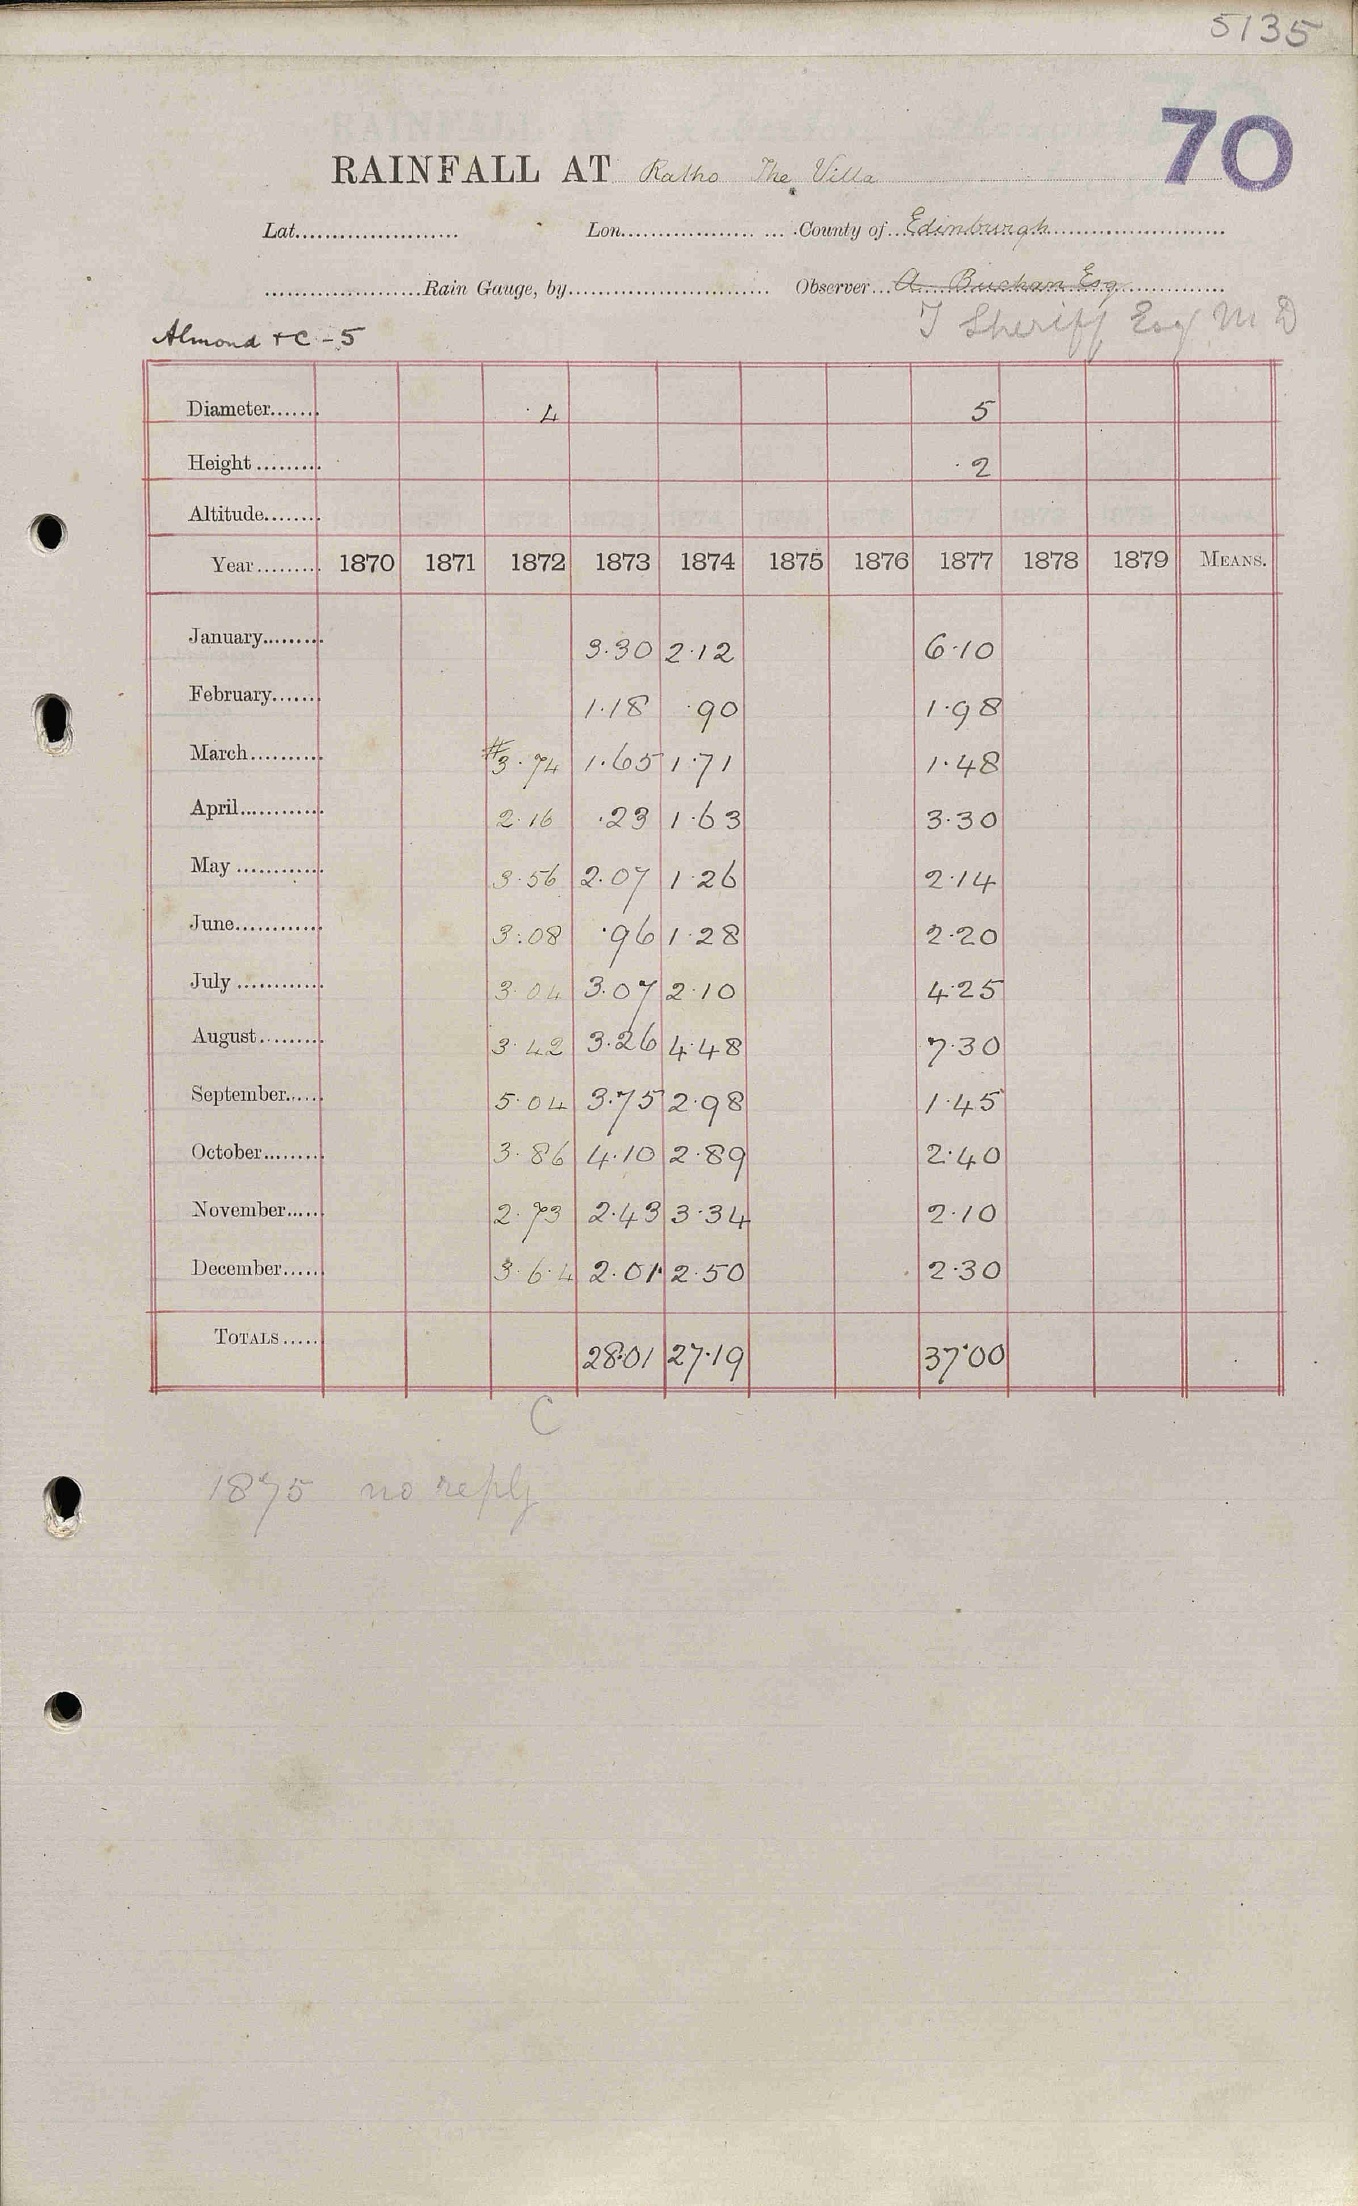 5135
70
RAINFALL AT Ratho The Villa
Lat. Lon. County of Edinburgh
Rain Gauge, by Observer A. Buchan Esq
T Sheriff Esq M D
Almond + C - 5
Diameter 4 5
Height 2
Altitude
Year 1870 1871 1872 1873 1874 1875 1876 1877 1878 1879 MEANS.
January 3.30 2.12 6.10
February 1.18 .90 1.98
March #3.74 1.65 1.71 1.48
April 2.16 .23 1.63 3.30
May 3.56 2.07 1.26 2.14
June 3.08 .96 1.28 2.20
July 3.04 3.07 2.10 4.25
August 3.42 3.26 4.48 7.30
September 5.04 3.75 2.98 1.45
October 3.86 4.10 2.89 2.40
November 2.73 2.43 3.34 2.10
December 3.64 2.01 2.50 2.30
TOTALS 28.01 27.19 37.00
C
1875 no reply